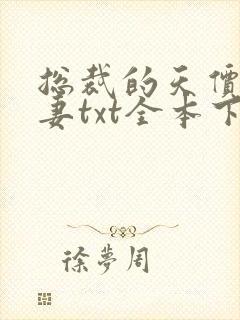 总裁的天價
妻txt全本下
徐夢周